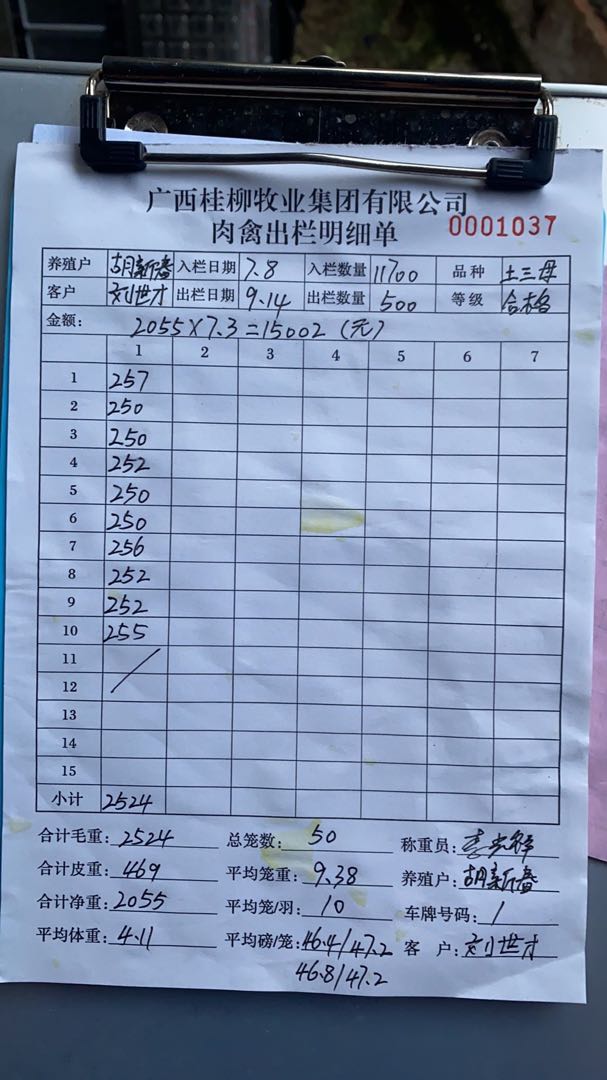 广西桂柳牧业集团有限公司
肉禽出栏明细单 0001037
养殖户 胡新番 入栏日期 7.8 入栏数量 11700 品种 土三母
客户 刘世才 出栏日期 9.14 出栏数量 500 等级 合格
金额: 2055×7.3=15002(元)
1 2 3 4 5 6 7
1 257
2 250
3 250
4 252
5 250
6 250
7 256
8 252
9 252
10 255
11
12
13
14
15
小计 2524
合计毛重: 2524 总笼数: 50 称重员:
合计皮重: 469 平均笼重: 9.38 养殖户: 胡新番
合计净重: 2055 平均笼/羽: 10 车牌号码: /
平均体重: 4.11 平均磅/笼: 46.4/47.2 客 户: 刘世才
46.8/47.2